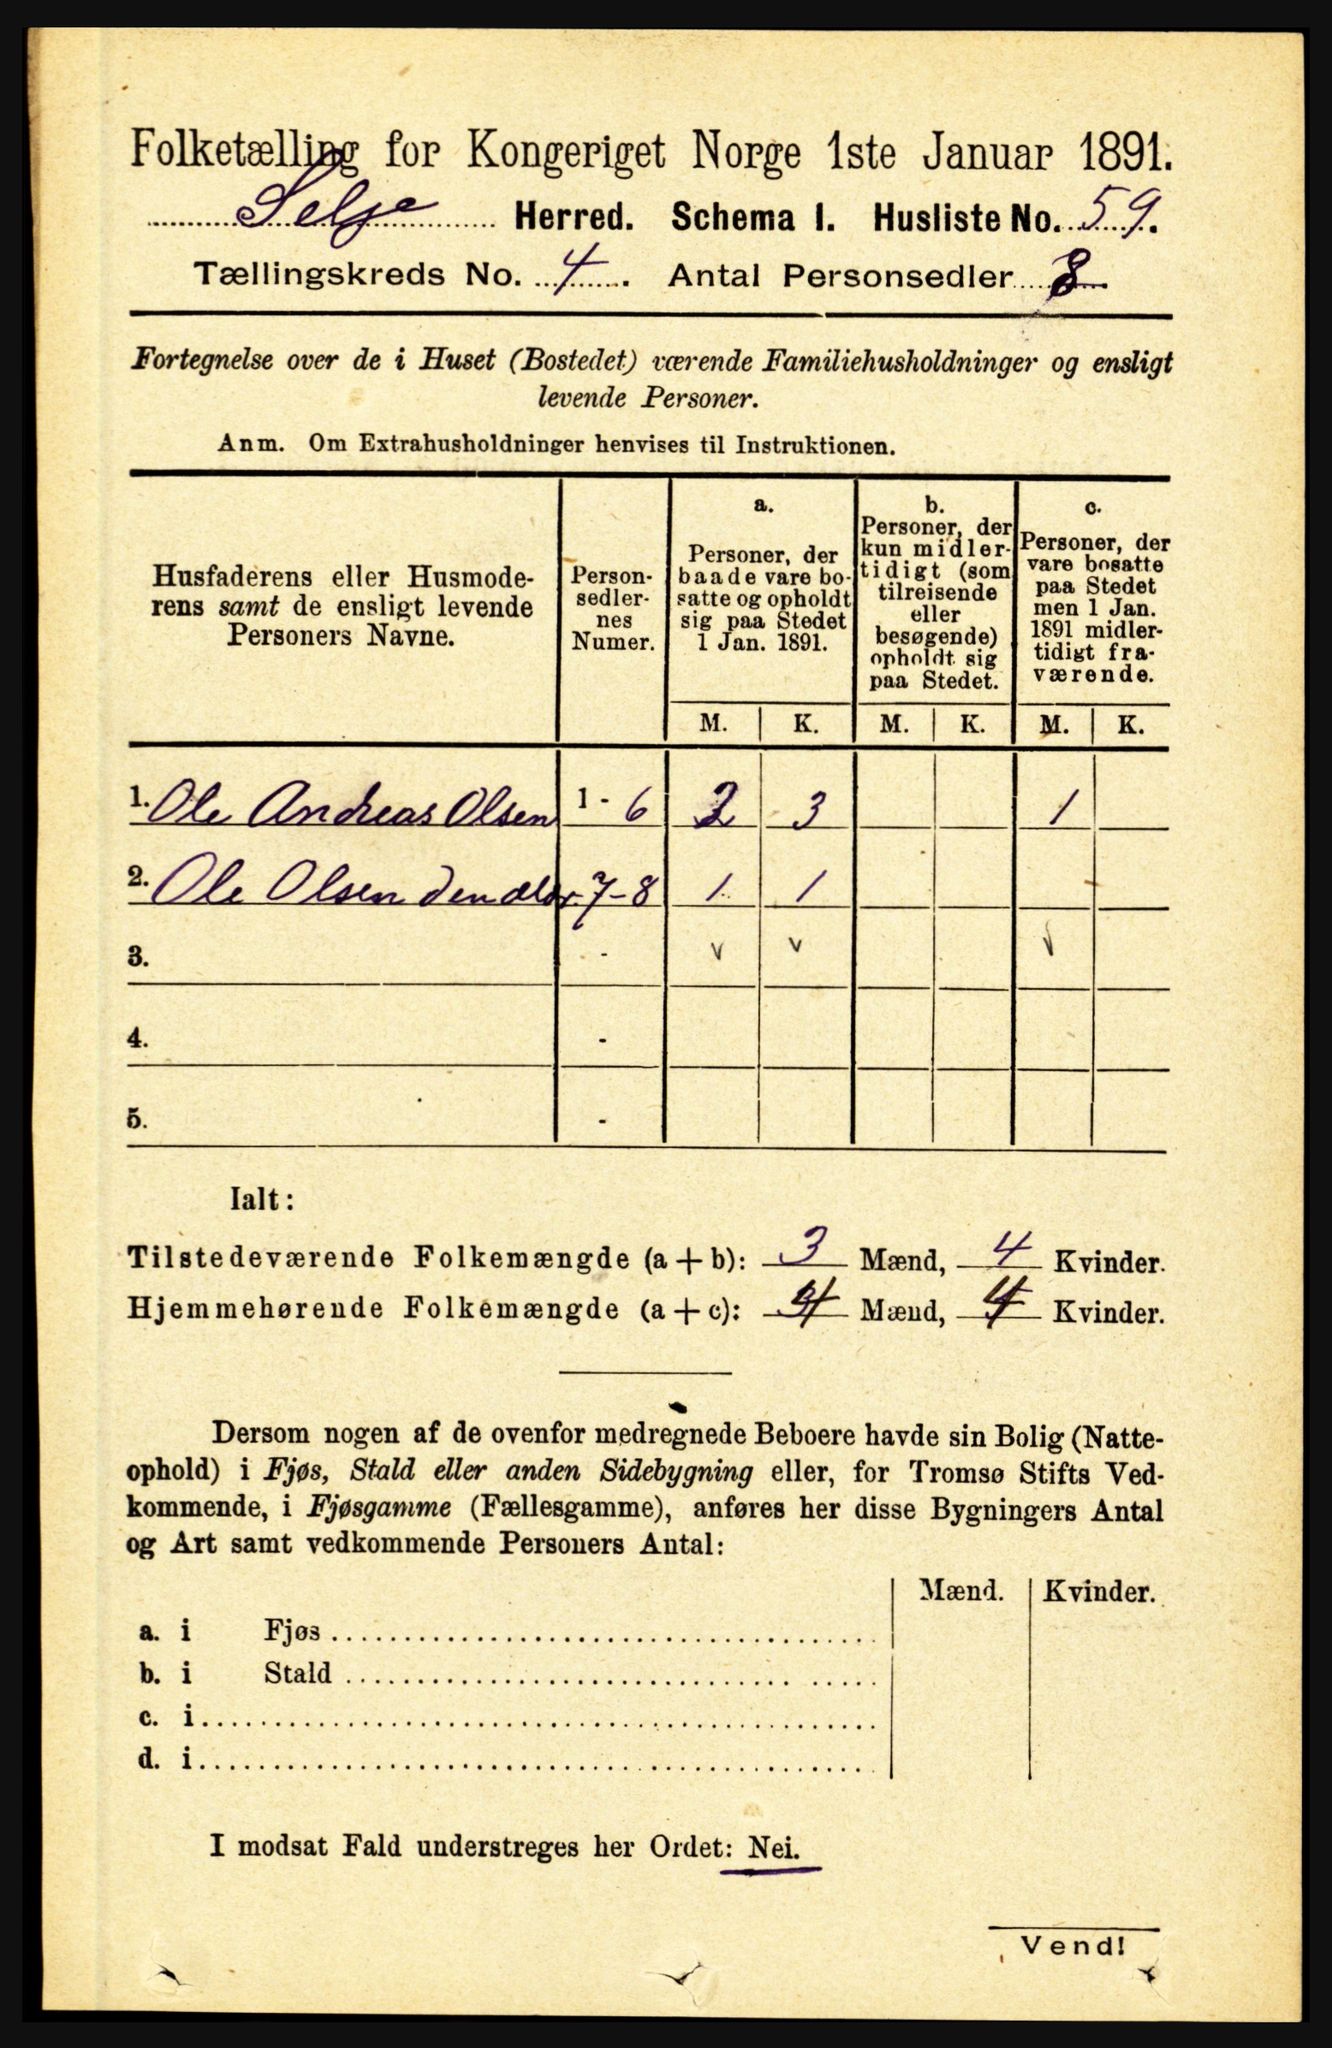 Folketælling for Kongeriget Norge 1ste Januar 1891.
Selje Herred. Schema I. Husliste No. 59.
Tællingskreds No. 4. Antal Personsedler 8
Fortegnelse over de i Huset (Bostedet) værende Familiehusholdninger og ensligt
levende Personer.
Anm. Om Extrahusholdninger henvises til Instruktionen.
Husfaderens eller Husmode-
rens samt de ensligt levende
Personers Navne.
Person-
sedler-
nes
Numer.
a.
Personer, der
baade vare bo-
satte og opholdt
sig paa Stedet
1 Jan. 1891.
b.
Personer, der
kun midler-
tidigt (som
tilreisende
eller
besøgende)
opholdt sig
paa Stedet.
c.
Personer, der
vare bosatte
paa Stedet
men 1 Jan.
1891 midler-
tidigt fra-
værende.
M. K. M. K. M. K.
1. Ole Andreas Olsen 1 - 6 2 3 1
2. Ole Olsen den ældr 7-8 1 1
3. - v v v
4. -
5. -
Ialt:
Tilstedeværende Folkemængde (a + b): 3 Mænd, 4 Kvinder.
Hjemmehørende Folkemængde (a + c): 4 Mænd, 4 Kvinder.
Dersom nogen af de ovenfor medregnede Beboere havde sin Bolig (Natte-
ophold) i Fjøs, Stald eller anden Sidebygning eller, for Tromsø Stifts Ved-
kommende, i Fjøsgamme (Fællesgamme), anføres her disse Bygningers Antal
og Art samt vedkommende Personers Antal:
Mænd. Kvinder.
a. i Fjøs
b. i Stald
c. i
d. i
I modsat Fald understreges her Ordet: Nei.
Vend!